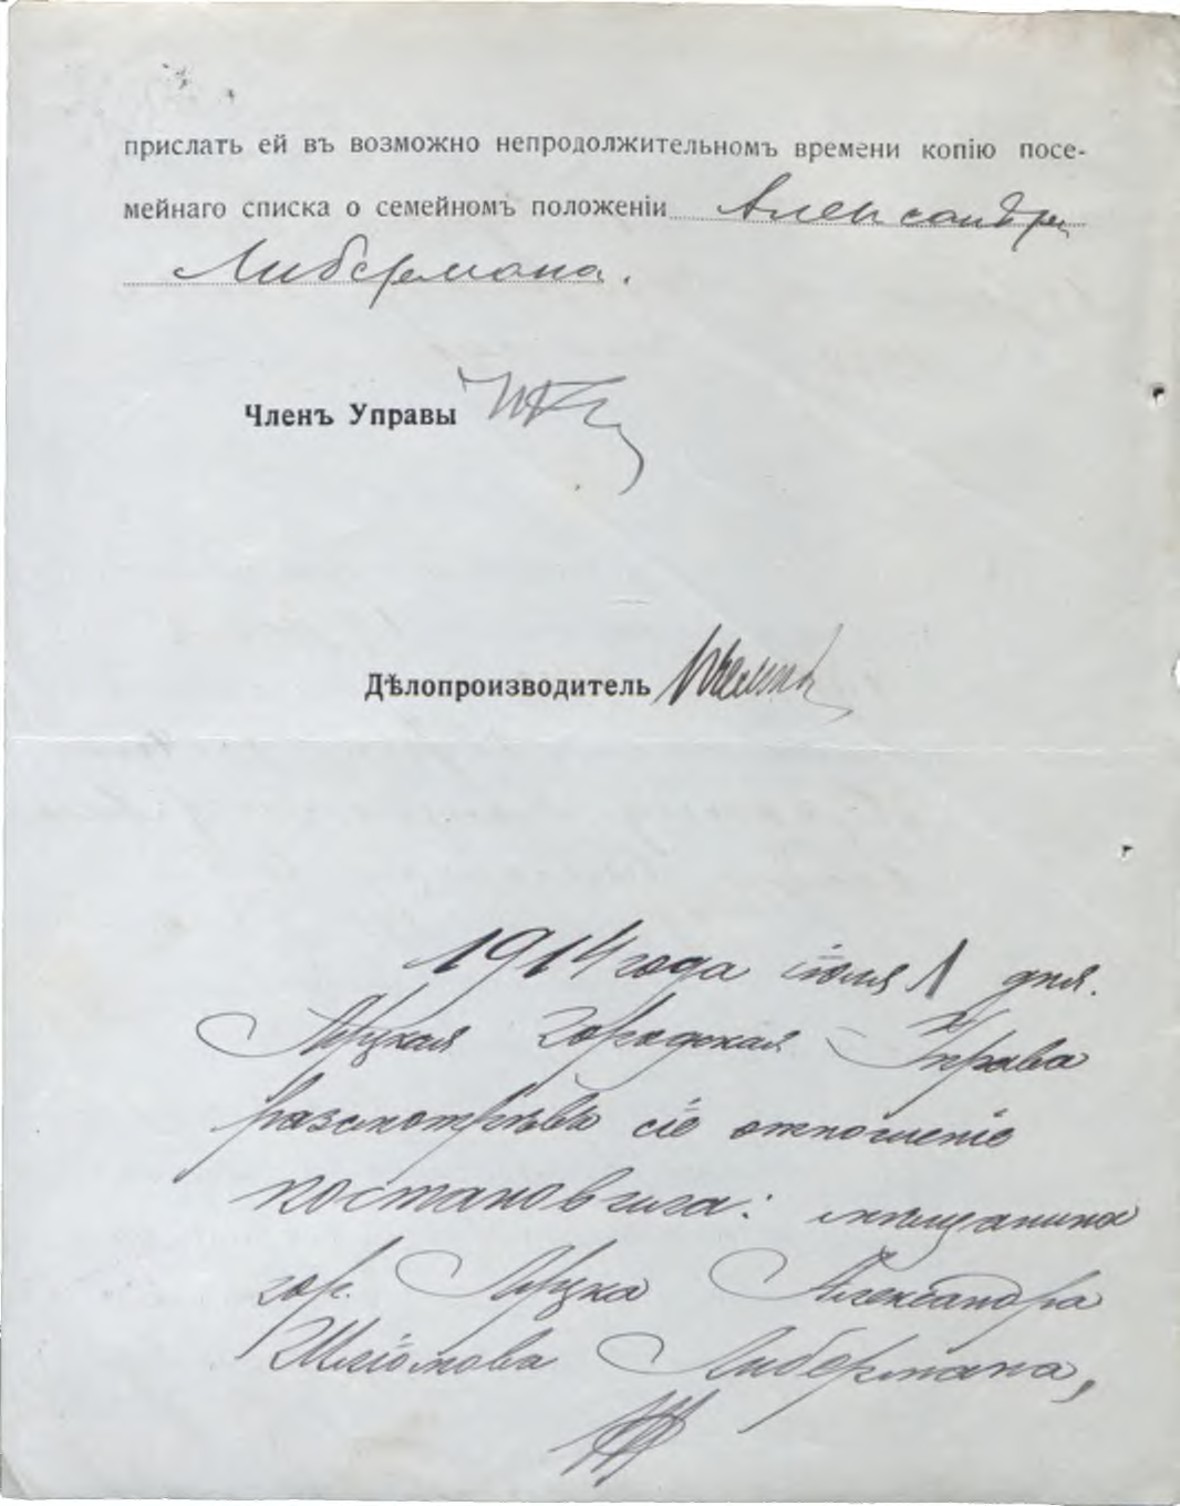 прислать ей въ возможно непродолжительномъ времени копію посе-
мейнаго списка о семейномъ положеніи Александра
Либермана.
Членъ Управы
Дѣлопроизводитель
1914 года іюля 1 дня.
Луцкая Городская Управа
разсмотрѣвъ сіе отношеніе
постановила: мѣщанина
гор. Луцка Александра
Шліомова Либермана,